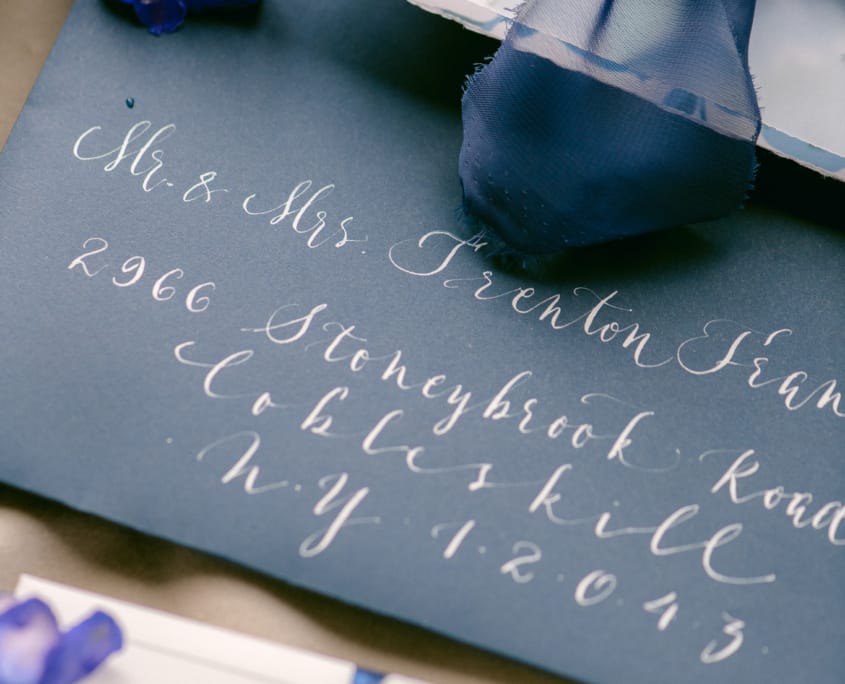 Mr. & Mrs. Trenton Fran
2966 Stoneybrook Road
Cobleskill
N.Y 1.2.0.4.3.